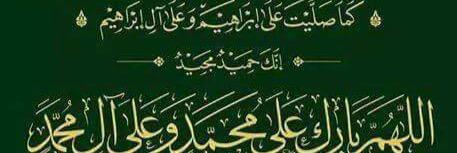 كَمَا صَلَّيْتَ عَلَىٰ إِبْرَاهِيْمَ وَعَلَىٰ آلِ إِبْرَاهِيْمَ
إِنَّكَ حَمِيْدٌ مَجِيْدٌ
اللَّهُمَّ بَارِكْ عَلَىٰ مُحَمَّدٍ وَعَلَىٰ آلِ مُحَمَّدٍ